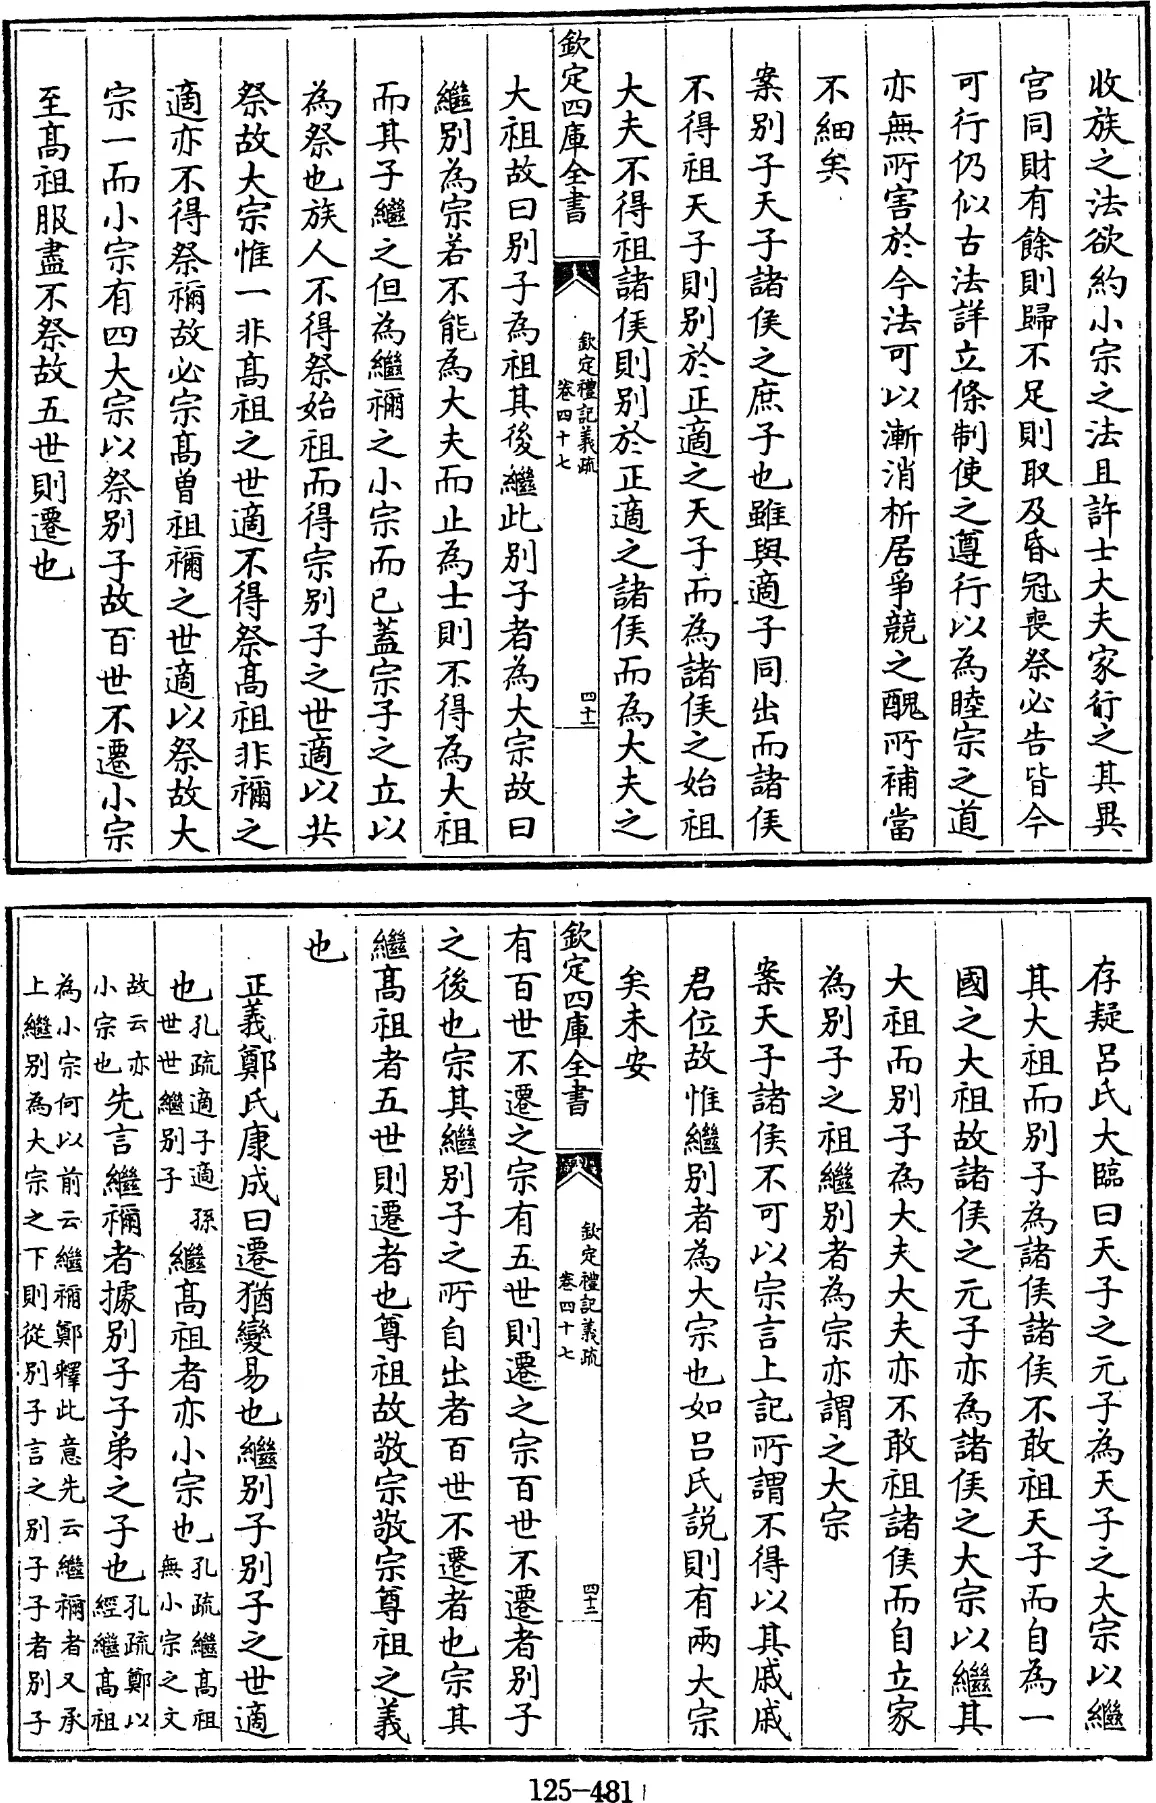 收族之法欲約小宗之法且許士大夫家行之其異
宫同財有餘則歸不足則取及昏冠喪祭必告皆今
可行仍似古法詳立條制使之遵行以為睦宗之道
亦無所害於今法可以漸消析居爭競之醜所補當
不細矣
案别子天子諸侯之庶子也雖與適子同出而諸侯
不得祖天子則别於正適之天子而為諸侯之始祖
大夫不得祖諸侯則别於正適之諸侯而為大夫之
欽定四庫全書
欽定禮記義疏
卷四十七
四十一
大祖故曰别子為祖其後繼此别子者為大宗故曰
繼别為宗若不能為大夫而止為士則不得為大祖
而其子繼之但為繼禰之小宗而已蓋宗子之立以
為祭也族人不得祭始祖而得宗别子之世適以共
祭故大宗惟一非髙祖之世適不得祭髙祖非禰之
適亦不得祭禰故必宗髙曾祖禰之世適以祭故大
宗一而小宗有四大宗以祭别子故百世不遷小宗
至髙祖服盡不祭故五世則遷也
存疑吕氏大臨曰天子之元子為天子之大宗以繼
其大祖而别子為諸侯諸侯不敢祖天子而自為一
國之大祖故諸侯之元子亦為諸侯之大宗以繼其
大祖而别子為大夫大夫亦不敢祖諸侯而自立家
為别子之祖繼别者為宗亦謂之大宗
案天子諸侯不可以宗言上記所謂不得以其戚戚
君位故惟繼别者為大宗也如吕氏說則有兩大宗
矣未安
欽定四庫全書
欽定禮記義疏
卷四十七
四十二
有百世不遷之宗有五世則遷之宗百世不遷者别子
之後也宗其繼别子之所自出者百世不遷者也宗其
繼髙祖者五世則遷者也尊祖故敬宗敬宗尊祖之義
也
正義鄭氏康成曰遷猶變易也繼别子别子之世適
也孔疏適子適孫世世繼别子繼髙祖者亦小宗也孔疏繼髙祖無小宗之文
故云亦小宗也先言繼禰者據别子子弟之子也孔疏鄭以經繼髙祖
為小宗何以前云繼禰鄭釋此意先云繼禰者又承
上繼别為大宗之下則從别子言之别子子者别子
125-481